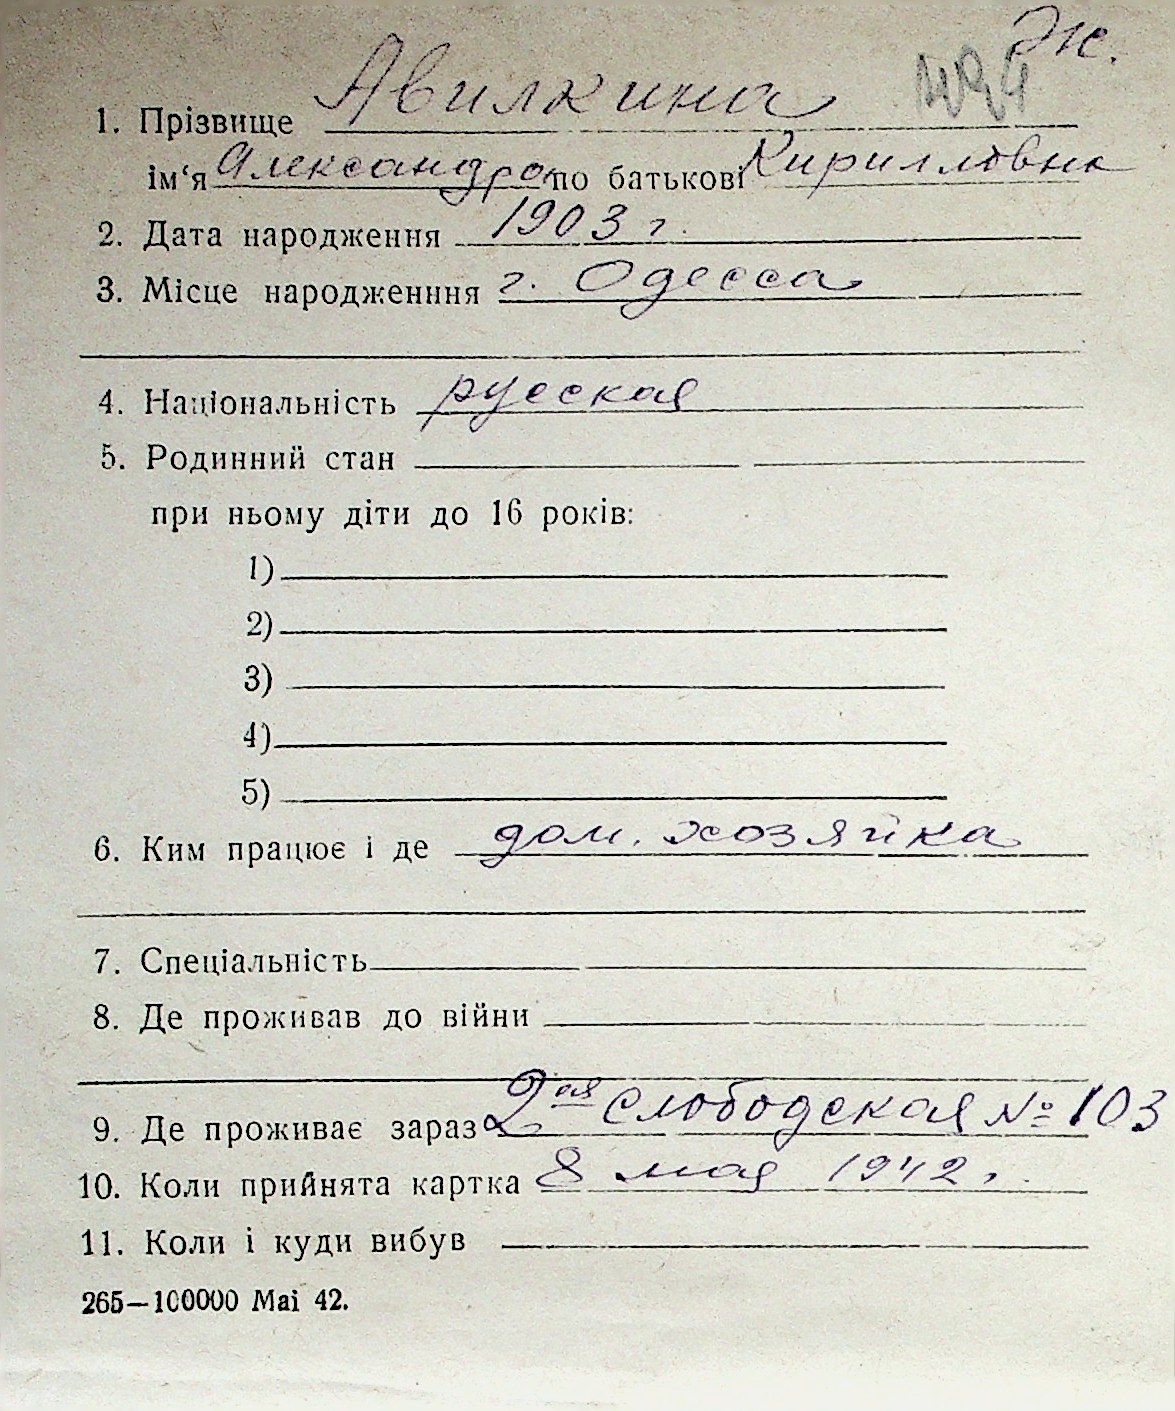 Ж.
494
1. Прізвище Авилкина
ім'я Александра по батькові Кирилловна
2. Дата народження 1903 г.
3. Місце народженння г. Одесса
4. Національність русская
5. Родинний стан
при ньому діти до 16 років:
1)
2)
3)
4)
5)
6. Ким працює і де дом. хозяйка
7. Спеціальність
8. Де проживав до війни
9. Де проживає зараз 2ая Слободская № 103
10. Коли прийнята картка 8 мая 1942 г.
11. Коли і куди вибув
265—100000 Mai 42.